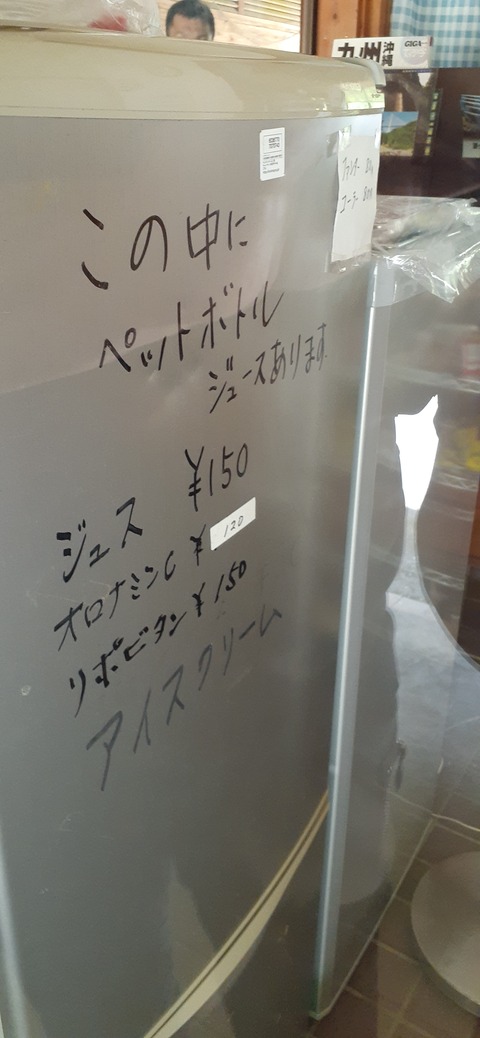 九州 沖縄 GIGA
この中に
ペットボトル
ジュースあります
ジュス ¥150
オロナミンC ¥120
リポビタン ¥150
アイスクリーム
コーラー